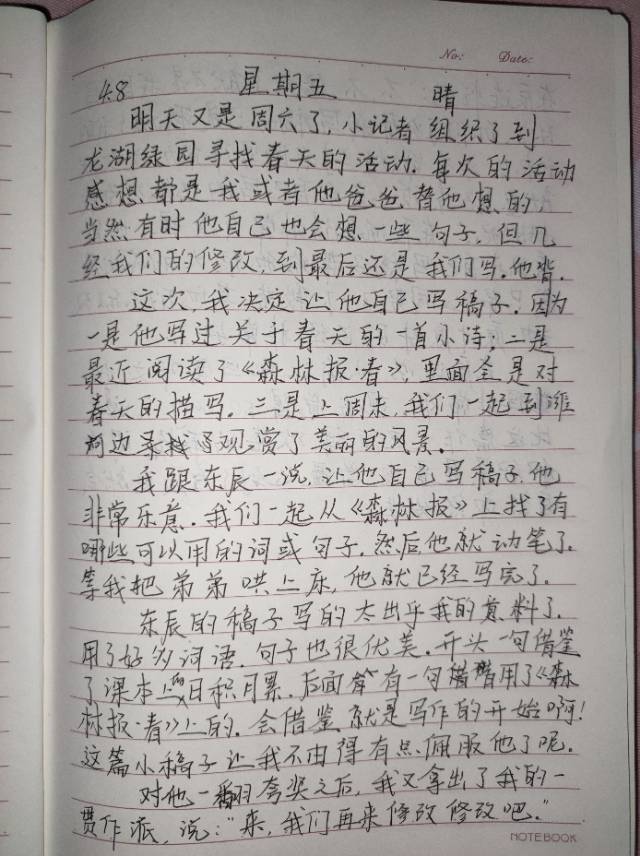 No: Date:
4.8 星期五 晴
明天又是周六了,小记者组织了到
龙湖绿园寻找春天的活动.每次的活动
感想都是我或者他爸爸替他想的,
当然有时他自己也会想一些句子.但几
经我们的修改,到最后还是我们写.他背.
这次,我决定让他自己写稿子.因为
一是他写过关于春天的一首小诗;二是
最近阅读了《森林报·春》,里面全是对
春天的描写.三是上周末,我们一起到潍
河边寻找观赏了美丽的风景.
我跟东辰一说,让他自己写稿子,他
非常乐意.我们一起从《森林报》上找了有
哪些可以用的词或句子.然后他就动笔了.
等我把弟弟哄上床,他就已经写完了.
东辰的稿子写的太出乎我的意料了.
用了好多词语.句子也很优美.开头一句借鉴
了课本上的日积月累.后面有一句借用了《森
林报·春》上的.会借鉴就是写作的开始啊!
这篇小稿子让我不由得有点佩服他了呢.
对他一翻夸奖之后,我又拿出了我的一
贯作派,说:"来,我们再来修改修改吧."
NOTEBOOK